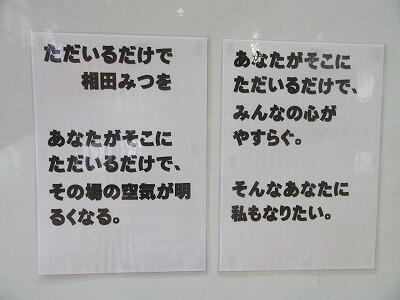 ただいるだけで
相田みつを
あなたがそこに
ただいるだけで、
その場の空気が明
るくなる。
あなたがそこに
ただいるだけで、
みんなの心が
やすらぐ。
そんなあなたに
私もなりたい。